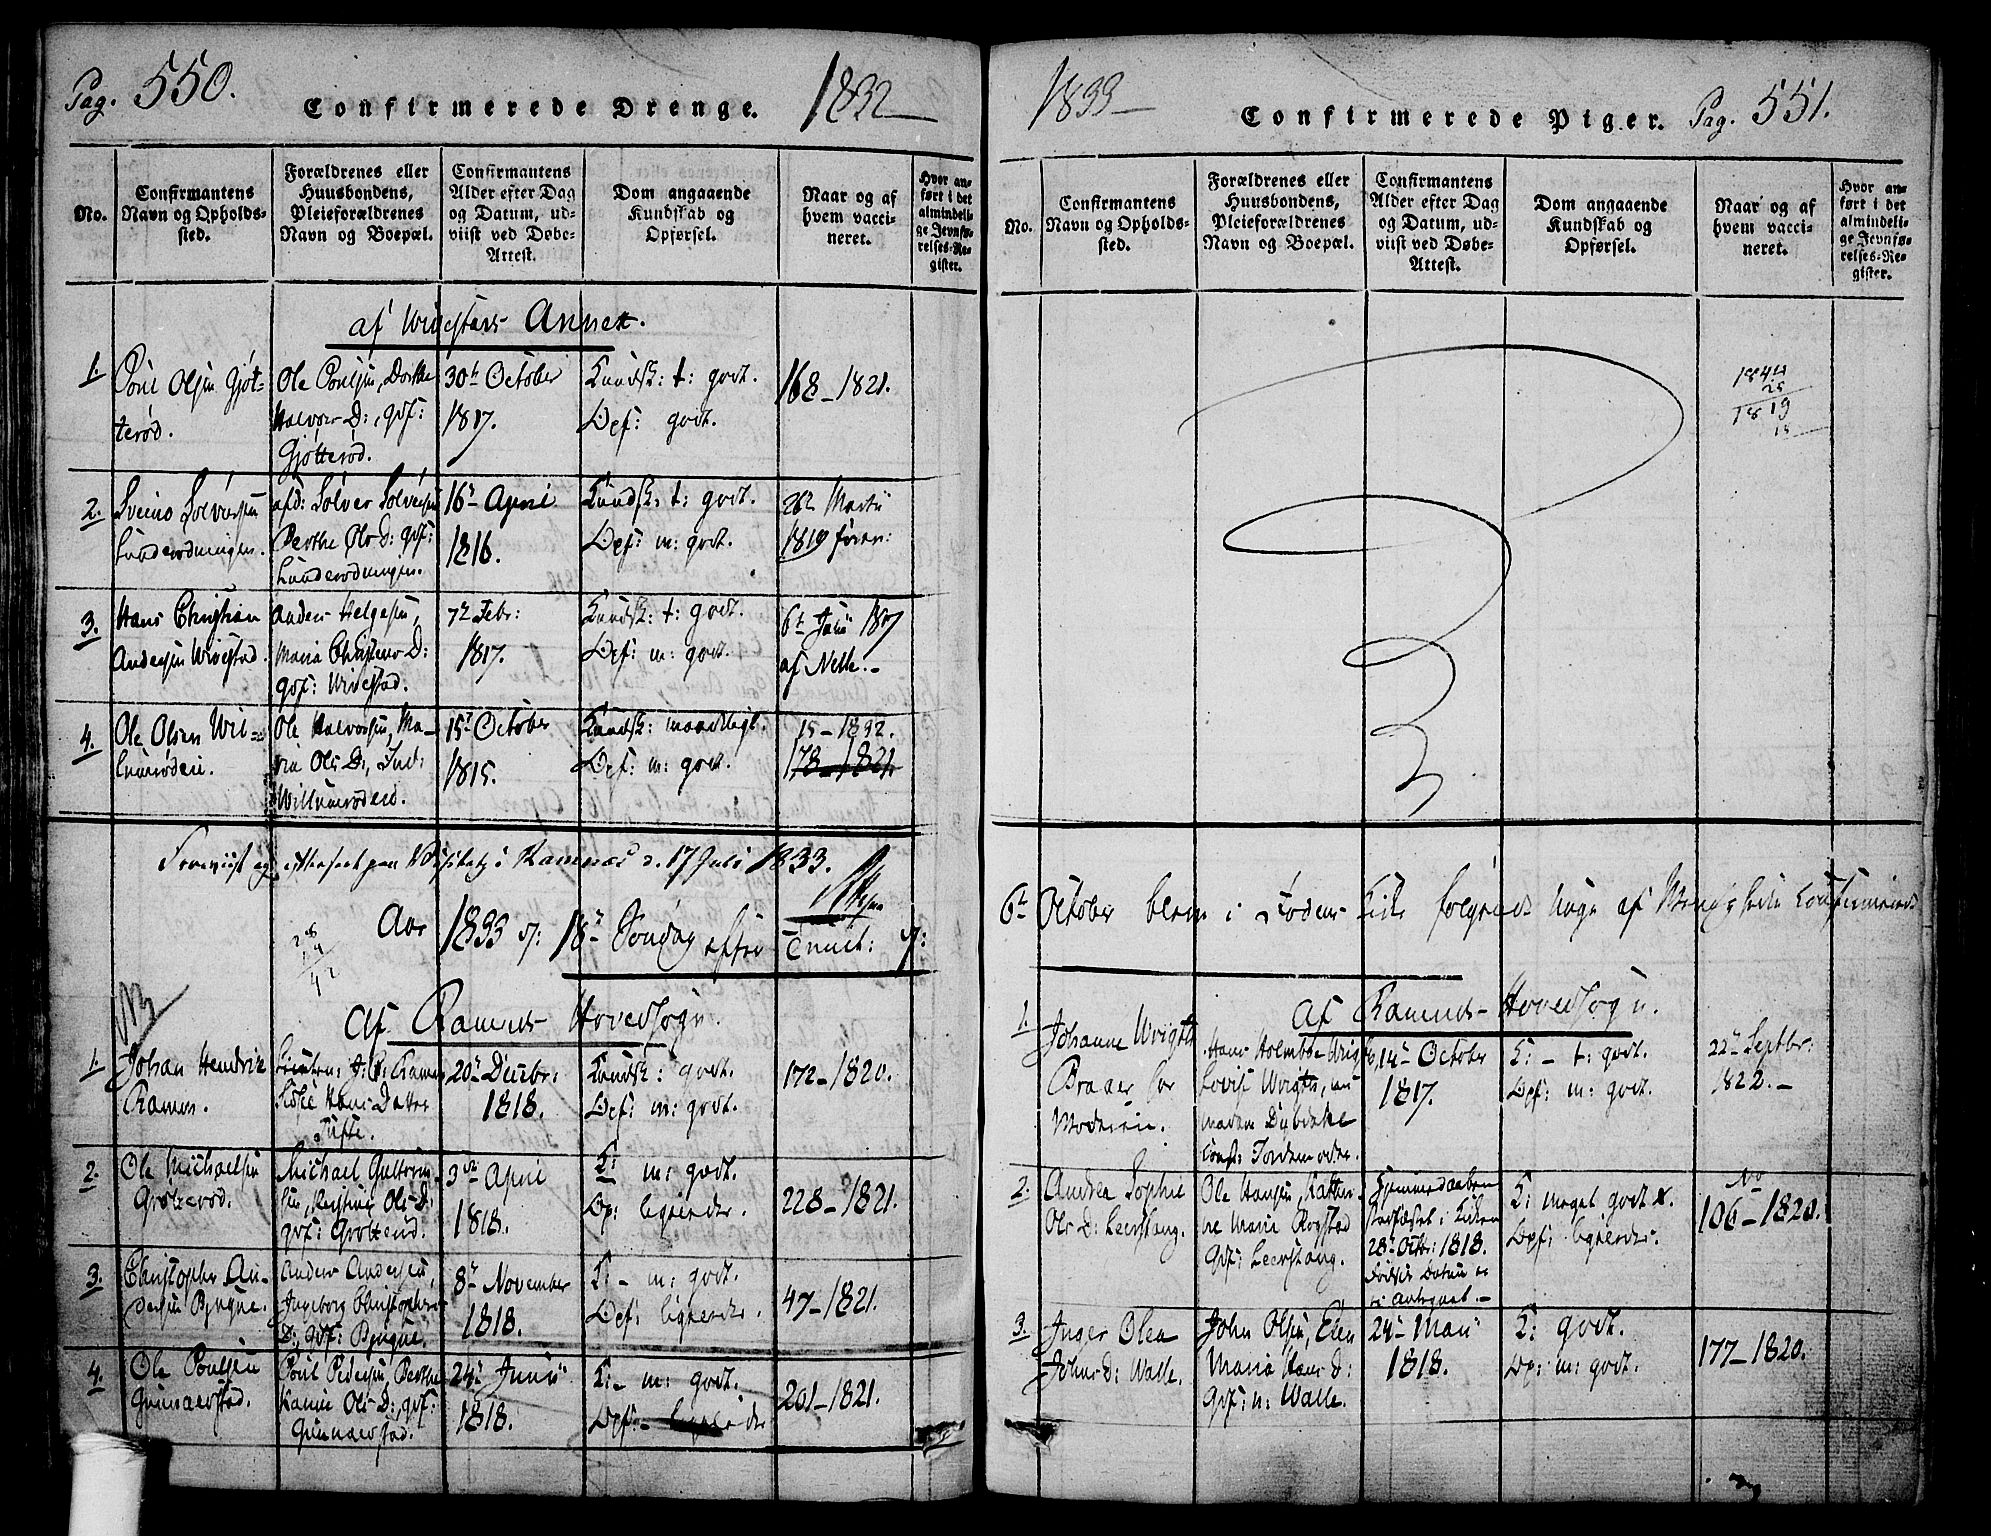 Pag. 550.
Confirmerede Drenge.
1832
No.
Confirmantens
Navn og Opholds-
sted.
Forældrenes eller
Huusbondens,
Pleieforældrenes
Navn og Boepæl.
Confirmantens
Alder efter Dag
og Datum, ud-
viist ved Døbe-
Attest.
Dom angaaende
Kundskab og
Opførsel.
Naar og af
hvem vacci-
neret.
Hvor an-
ført i det
almindeli-
ge Jevnfø-
relses-Re-
gister.
af Wivestads Annex.
1.
Poul Olsen Gjøt-
terød.
Ole Poulsen, Dorthe
Halvors D:, gdf:
Gjøtterød.
30t October
1817.
Kundsk: t: godt.
Opf: godt.
168-1821.
2.
Svend Sølversen
Lunderødningen.
afd: Sølver Sølversen
Berthe Ols D: gdf:
Lunderødningen.
16t April
1816.
Kundsk: t: godt.
Opf: m: godt.
26t Martii
1819
3.
Hans Christian
Andersen Wivestad.
Anders Helgesen,
Maria Christens D:
gdf: Wivestad.
7t Febr:
1817.
Kundsk: t: godt.
Opf: m: godt.
6t Julii
af
4.
Ole Olsen Wil-
lumrødeie.
Ole Halvorsen, Ma-
ria Ols D:, Ind:
Willumrødeie.
15t October
1815.
Kundsk: maadeligt.
Opf: m: godt.
15-1832.
178-1821.
Foreviist og efterseet paa Visitatz i Ramnæs d. 17 Juli 1833.
Aar 1833 d: 18t Søndag efter Trinit: d:
NB
Af Ramnes Hovedsogn.
1.
Johan Hendrik
Ramm.
Ramm
Hans Datter
Tufte.
20t Decbr:
1818.
Kundsk: godt.
Opf: m: godt.
172-1820.
2.
Ole Michaelsen
Grotterød.
Michael Guttorm-
sen, Kirstine Ols D:
gdf: Grotterød.
3die April
1818.
K: m: godt.
Op: ligeledes.
228-1821.
3.
Christopher An-
dersen Bjugue.
Anders Andersen,
Ingeborg Christophers
D:, gdf: Bjugue.
8t November
1818.
K:- m: godt.
Opf: ligeledes.
47-1821.
4.
Ole Poulsen
Gunnarstad.
Poul Pedersen, Berthe
Karine Ols D:, gdf:
Gunnarstad.
24t Junii
1818.
K:- m: godt.
Opf:- ligeledes
201-1821.
1833
Confirmerede Piger.
Pag. 551.
No.
Confirmantens
Navn og Opholds-
sted.
Forældrenes eller
Huusbondens,
Pleieforældrenes
Navn og Boepæl.
Confirmantens
Alder efter Dag
og Datum, ud-
viist ved Døbe-
Attest.
Dom angaaende
Kundskab og
Opførsel.
Naar og af
hvem vacci-
neret.
Hvor an-
ført i det
almindeli-
ge Jevnfø-
relses-Re-
gister.
1844
25
1819
15
6t October bleve i Fodens Kirke følgende Unge af Menigheden Confirmerede
af Ramnes Hovedsogn.
1.
Johanne Wright
Hans Holmboe Wright,
Lovise Wright, nu
Madam
14t October
1817.
K:- t: godt.
Opf: m: godt.
22t Septbr:
1822.-
2.
Andrea Sophie
Ols D: Leerstang.
Ole Hansen, Kathri-
ne Maria Rogstad
Gdf: Leerstang.
Hjemmedaaben
stadfæstet i Kirken
28t Octbr: 1818.
Fødsels Datum er
ei antegnet.-
K: meget godt.
Opf: ligeledes.
No
106-1820.
3.
Inger Olea
Johns D: Walle.
John Olsen, Elen
Maria Hans D:
Gdf: n: Walle.
24t Maii
1818.
K: godt.
Op: m: godt.
177-1820.